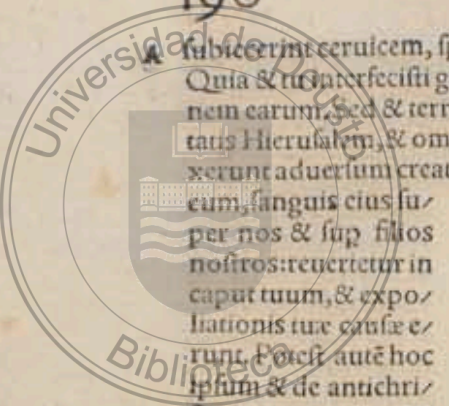 190
A subiecerint ceruicem, sp
Quia & tu interfecisti g
nem earum, sed & terr
tatis Hierusalem, & om
xerunt aduersum creat
eum, sanguis eius su-
per nos & sup filios
nostros: reuertetur in
caput tuum, & expo-
liationis tuæ causæ e-
runt. Potest autē hoc
ipsum & de antichri-
Universidad de Deusto
Biblioteca